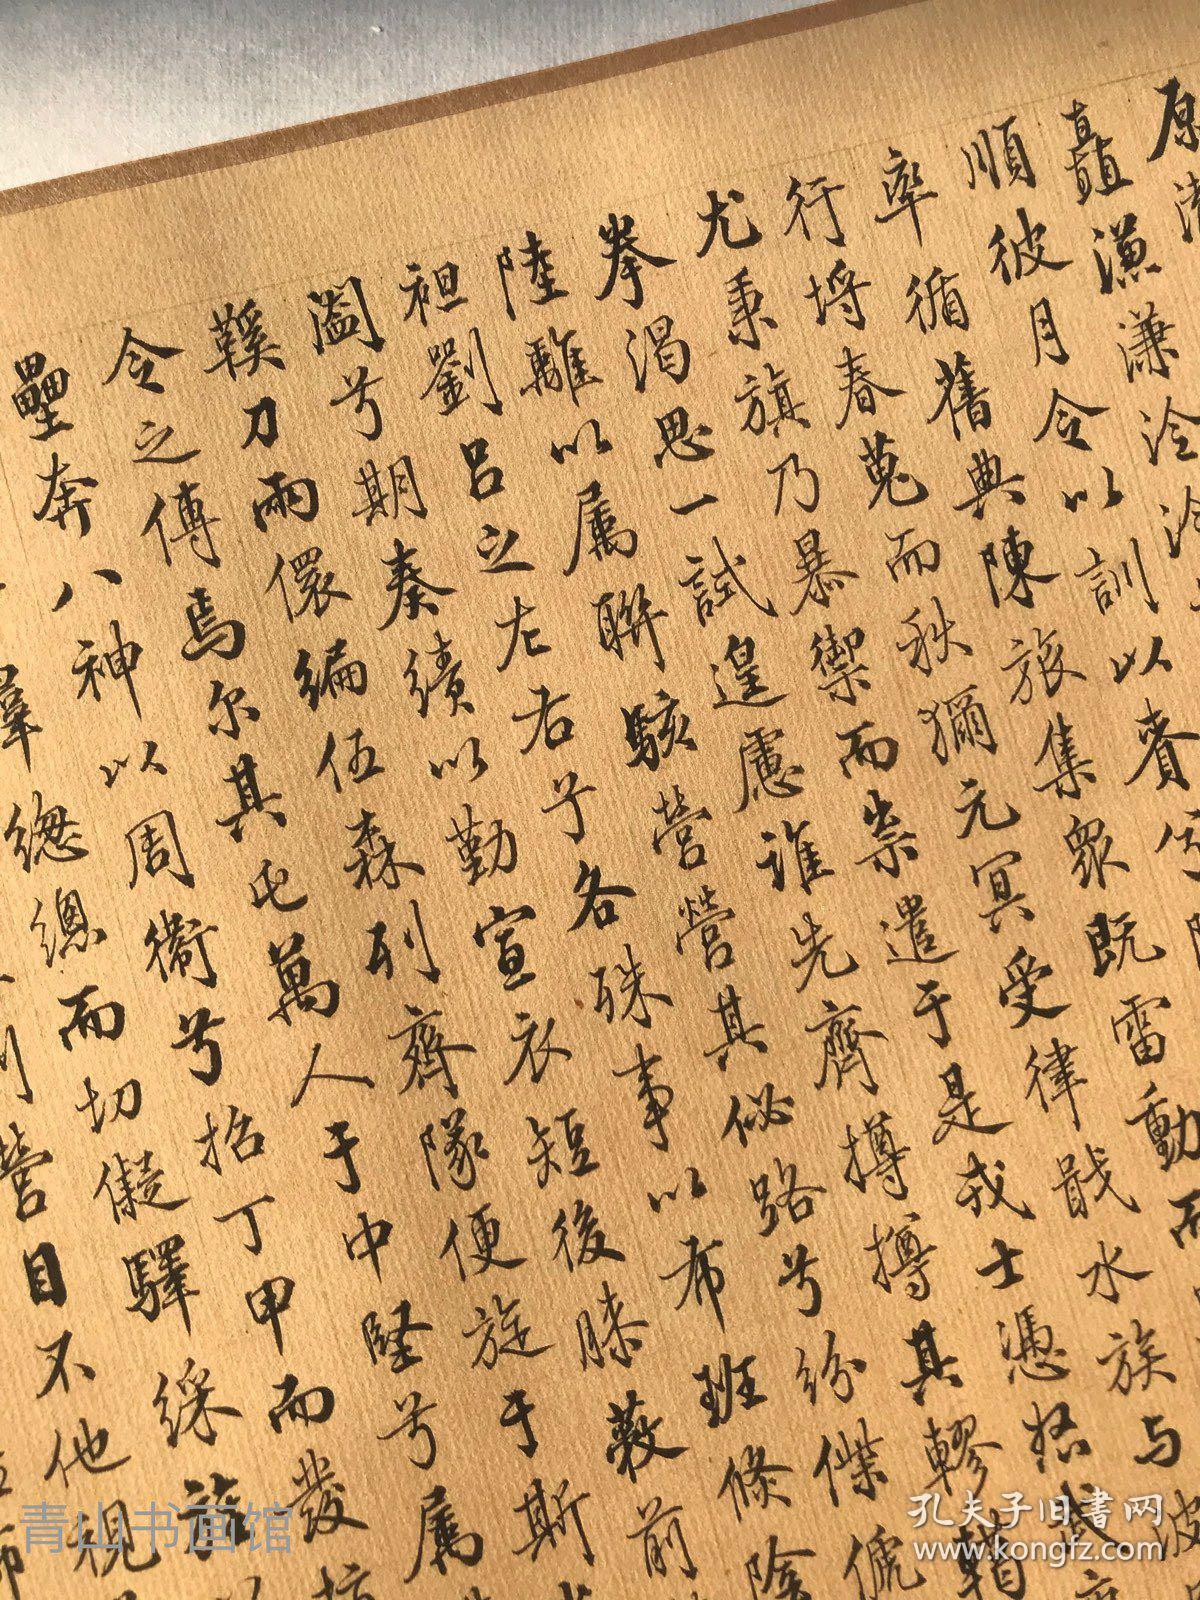 原
矗
順彼月令以訓以賚兮
率循舊典陳旅集眾既雷動而
行埒春蒐而秋獮元冥受律戢水族与波
尤秉旗乃暴禦而祟遣于是戎士憑怒
拳渴思一試遑慮誰先齊摶摶其轇轕
陸離以属聯駭營營其佖路兮紛傑傂
袒劉呂之左右兮各殊事以布班條陰
闔兮期奏績以勤宣衣短後膝蔽前
鞵刀兩儇編伍森列齊隊便旋于斯
令之傅焉尔其屯萬人于中堅兮属
壘奔八神以周衛兮招丁甲而發
總總而切儗驛綵
營目不他視
青山书画馆
孔夫子旧书网
www.kongfz.com